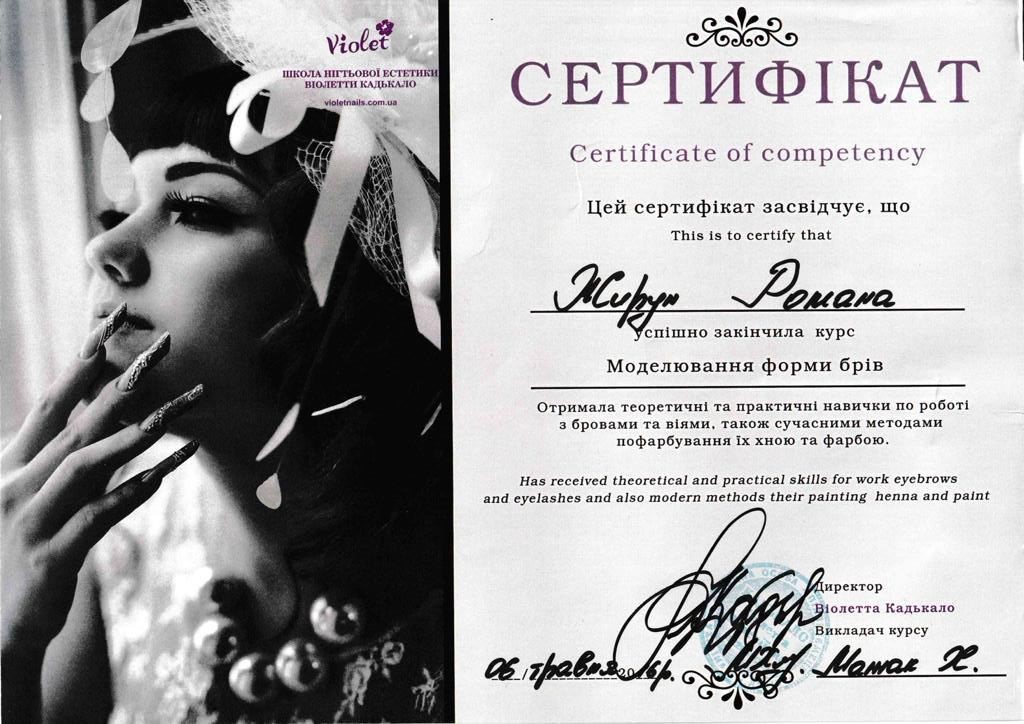 Violet
ШКОЛА НІГТЬОВОЇ ЕСТЕТИКИ
ВІОЛЕТТИ КАДЬКАЛО
violetnails.com.ua
СЕРТИФІКАТ
Certificate of competency
Цей сертифікат засвідчує, що
This is to certify that
Жирун Романа
успішно закінчила курс
Моделювання форми брів
Отримала теоретичні та практичні навички по роботі
з бровами та віями, також сучасними методами
пофарбування їх хною та фарбою.
Has received theoretical and practical skills for work eyebrows
and eyelashes and also modern methods their painting henna and paint
Директор
Віолетта Кадькало
Викладач курсу
06 травня 2016р.